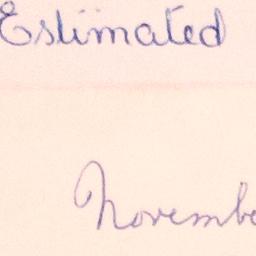 Estimated
Novembe